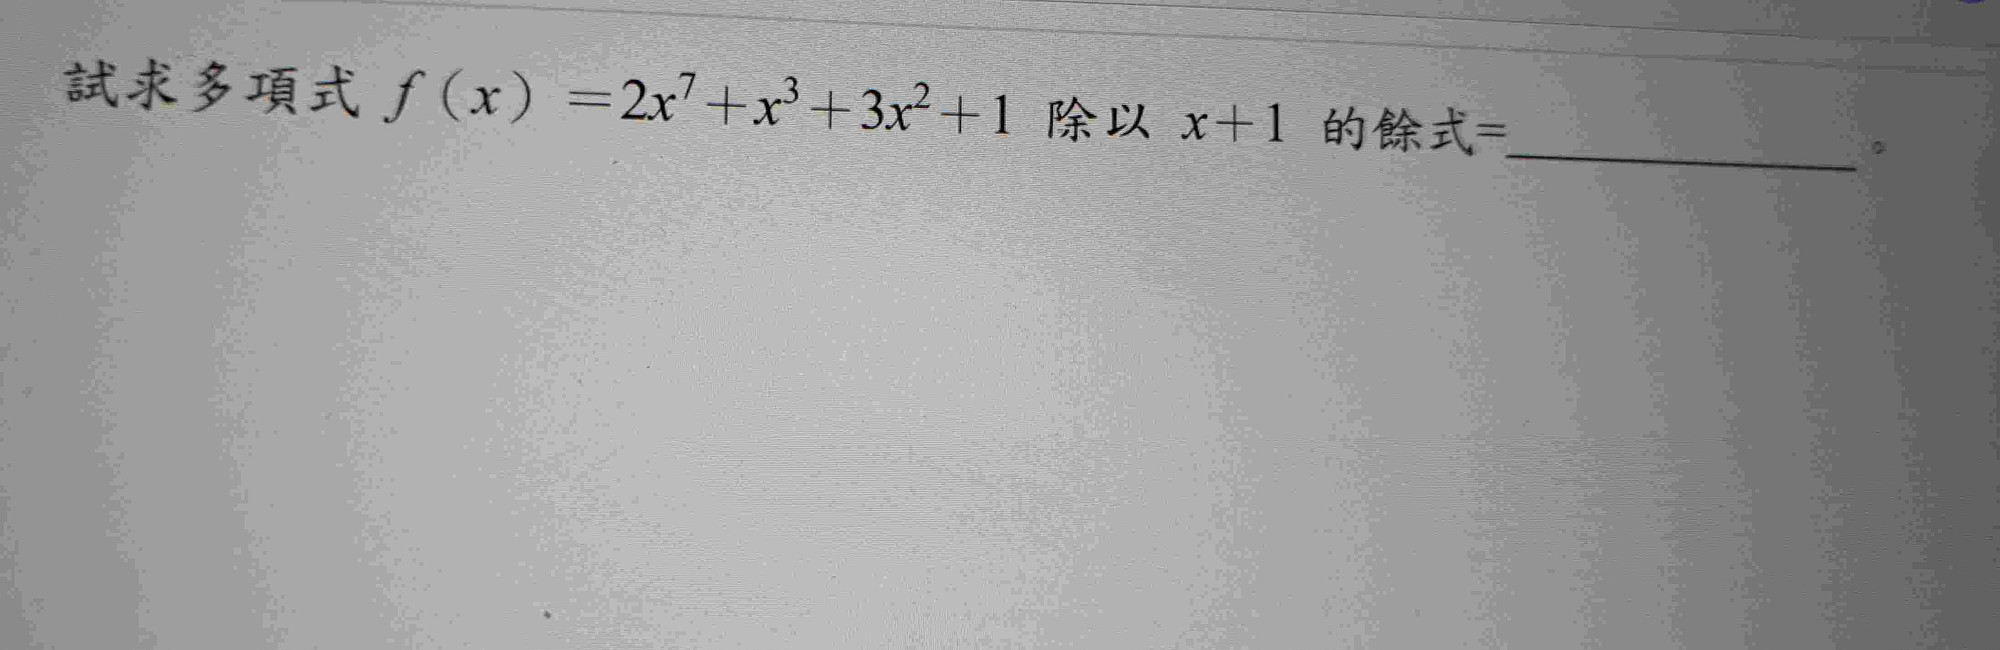 試求多項式 f(x) =2x⁷+x³+3x²+1 除以 x+1 的餘式=__________。